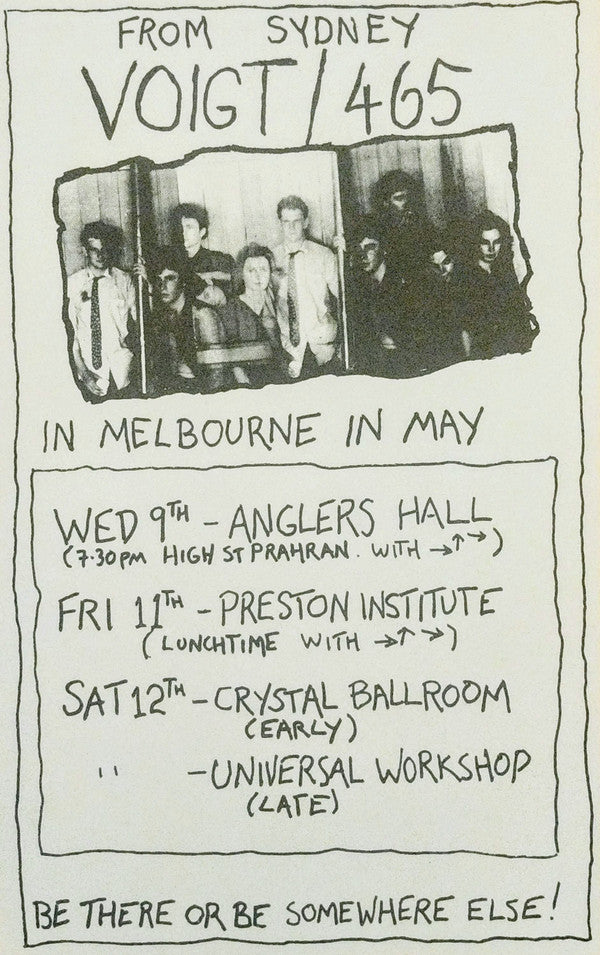 FROM SYDNEY
VOIGT/465
IN MELBOURNE IN MAY
WED 9TH - ANGLERS HALL
(7.30PM HIGH ST PRAHRAN. WITH →↑→)
FRI 11TH - PRESTON INSTITUTE
(LUNCHTIME WITH →↑→)
SAT 12TH - CRYSTAL BALLROOM
(EARLY)
" - UNIVERSAL WORKSHOP
(LATE)
BE THERE OR BE SOMEWHERE ELSE!